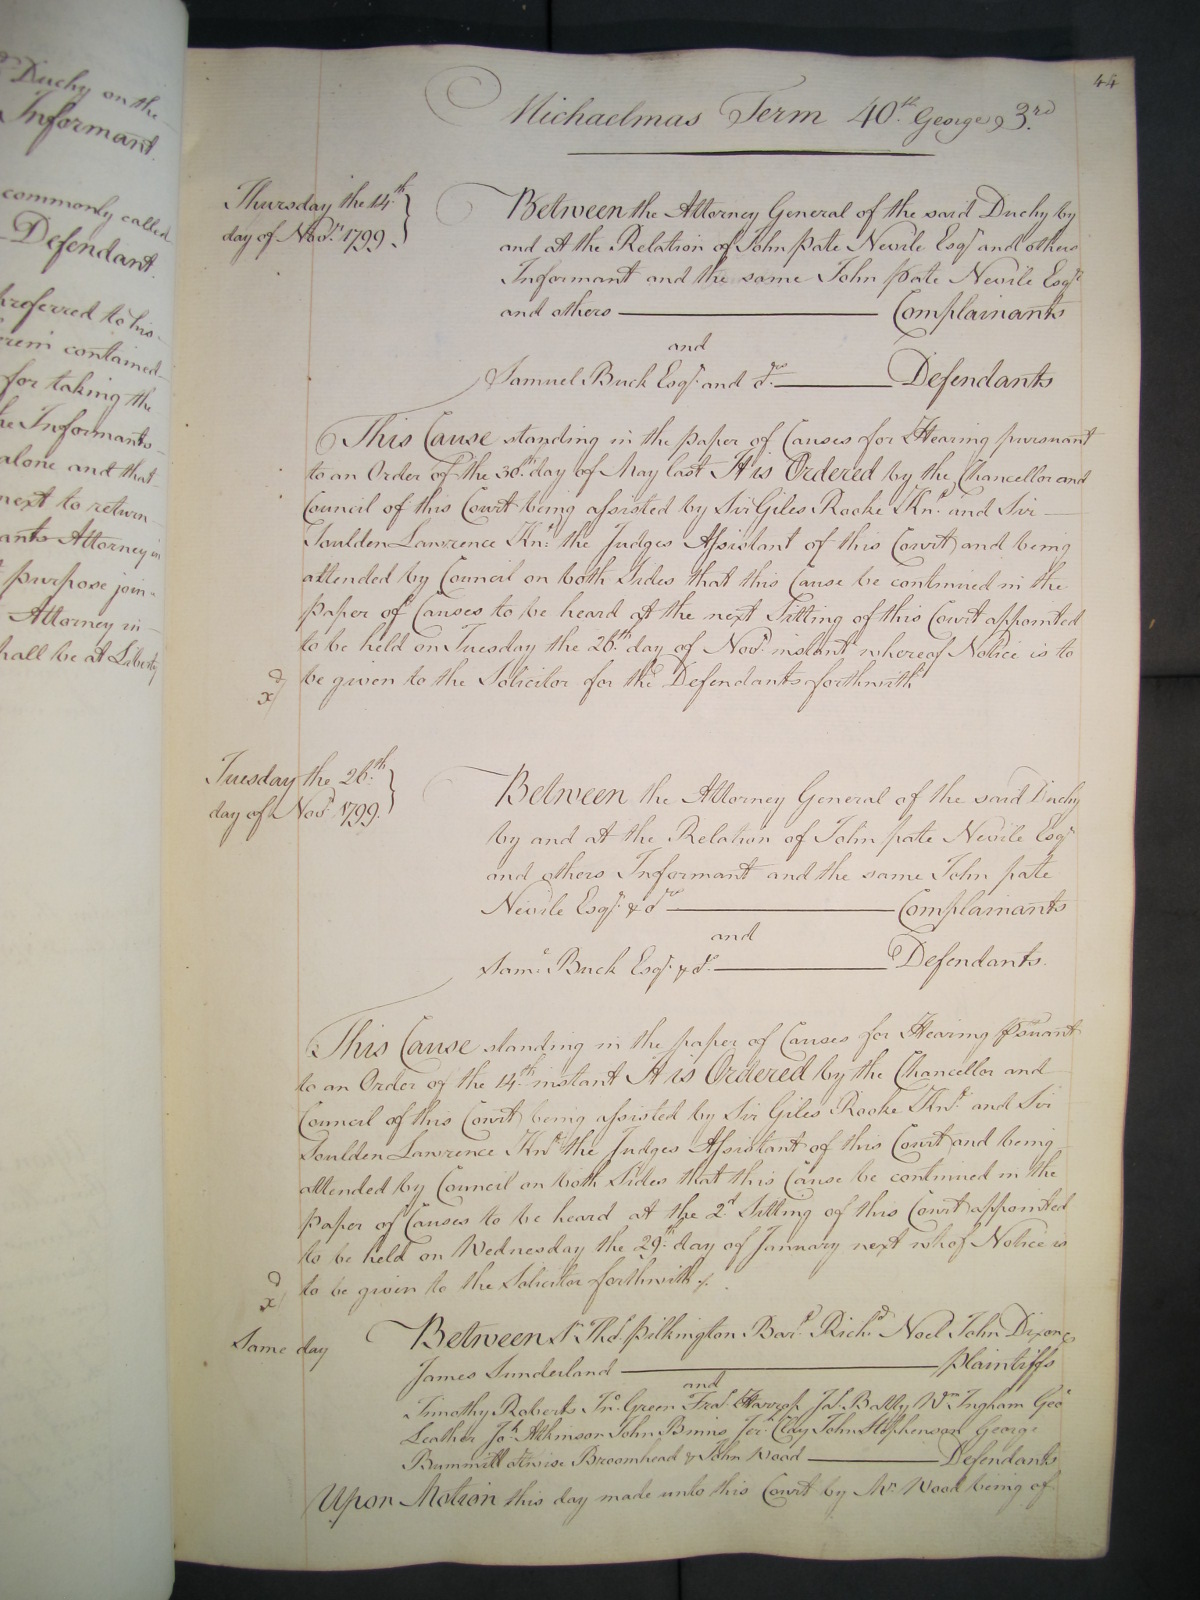 Duchy on the
Informant.
commonly called
Defendant.
referred to his
contained
for taking the
Informants
alone and that
next to return
Attorney in
purpose join-
Attorney in
shall be at Liberty
44
Michaelmas Term 40th. George 3rd.
Thursday the 14th
day of Novr. 1799.
Between the Attorney General of the said Duchy by
and at the Relation of John pate Nevile Esqr and others
Informant and the same John pate Nevile Esqr
and others Complainants
and
Samuel Buck Esqr. and ors. Defendants
This Cause standing in the paper of Causes for Hearing pursuant
to an Order of the 30th. day of May last It is Ordered by the Chancellor and
Council of this Court being assisted by Sir Giles Rooke Knt. and Sir
Soulden Lawrence Knt. the Judges Assistant of this Court and being
attended by Council on both Sides that this Cause be continued in the
paper of Causes to be heard at the next Sitting of this Court appointed
to be held on Tuesday the 26th. day of Novr. instant whereof Notice is to
be given to the Solicitor for the Defendants forthwith
Tuesday the 26th.
day of Novr. 1799.
Between the Attorney General of the said Duchy
by and at the Relation of John pate Nevile Esqr
and others Informant and the same John pate
Nevile Esqr. & ors Complainants
and
Saml. Buck Esqr. & ors. Defendants.
This Cause standing in the paper of Causes for Hearing psuant
to an Order of the 14th. instant It is Ordered by the Chancellor and
Council of this Court being assisted by Sir Giles Rooke Knt. and Sir
Soulden Lawrence Knt. the Judges Assistant of this Court and being
attended by Council on both Sides that this Cause be continued in the
paper of Causes to be heard at the 2d. Sitting of this Court appointed
to be held on Wednesday the 29th. day of January next whof Notice is
to be given to the Solicitor forthwith
Same day
Between Sr. Thos. Pilkington Bart. Richd. Noel John Dixon &
James Sunderland plaintiffs
and
Timothy Roberts Jno. Green Fras. Harrop Jas. Batty Wm. Ingham Geo
Leather Jos. Atkinson John Binns Jerh. Clay John Stephenson George
Bummitt otwise Broomhead & John Wood Defendants
Upon Motion this day made unto this Court by Mr. Wood being of